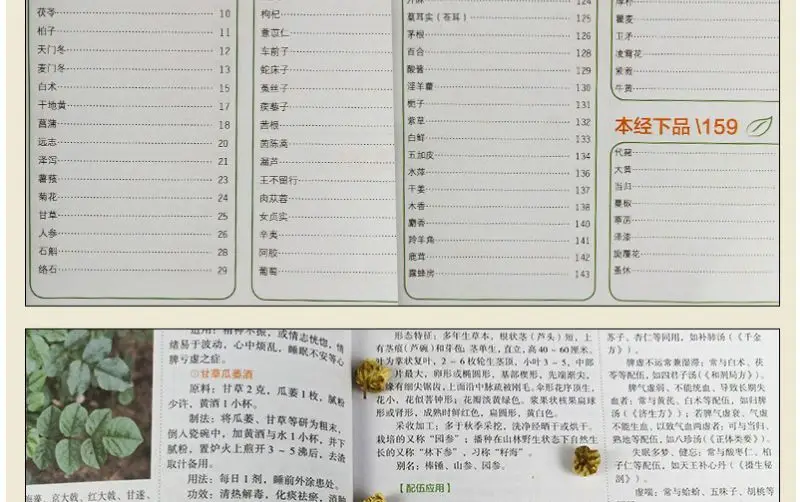 茯苓 10
柏子 11
天门冬 12
麦门冬 13
白术 15
干地黄 17
菖蒲 18
远志 20
泽泻 21
薯蓣 23
菊花 24
甘草 25
人参 26
石斛 28
络石 29
枸杞
薏苡仁
车前子
蛇床子
菟丝子
蒺藜子
茜根
茵陈蒿
漏芦
王不留行
肉苁蓉
女贞实
辛夷
阿胶
葡萄
124
葈耳实（苍耳） 125
茅根 126
百合 128
酸酱 129
淫羊藿 130
栀子 131
紫草 132
白鲜 133
五加皮 134
水萍 136
干姜 137
木香 138
麝香 140
羚羊角 141
鹿茸 142
露蜂房 143
瞿麦
卫矛
凌霄花
紫葳
牛黄
本经下品\159
代赭
大黄
当归
蔓椒
葶苈
泽漆
旋覆花
蚤休
适用：精神不振，或情志恍惚，情
绪易于波动，心中烦乱，睡眠不安等心
脾亏虚之症。
①甘草瓜蒌酒
原料：甘草 2 克，瓜蒌 1 枚，腻粉
少许，黄酒 1 小杯。
制法：将瓜蒌、甘草等研为粗末，
倒入瓷碗中，加黄酒与水 1 小杯，并下
腻粉，置炉火上煎开 3～5 沸后，去渣
取汁备用。
用法：每日 1 剂，睡前外涂患处。
功效：清热解毒，化痰祛瘀，消肿
海藻、京大戟、红大戟、甘遂、
形态特征：多年生草本，根状茎（芦头）短，上
有茎痕（芦碗）和芽苞；茎单生，直立，高 40～60 厘米，
叶为掌状复叶，2～6 枚轮生茎顶，小叶 3～5，中部
片最大，卵形或椭圆形，基部楔形，先端渐尖，
缘有细尖锯齿，上面沿中脉疏被刚毛。伞形花序顶生，
花小，花似苦钟形；花瓣淡黄绿色。浆果状核果扁球
形或肾形，成熟时鲜红色，扁圆形，黄白色。
采收加工：多于秋季采挖，洗净经晒干或烘干。
栽培的又称“园参”；播种在山林野生状态下自然生
长的又称“林下参”，习称“籽海”。
别名：棒锤、山参、园参。
【配伍应用】
苏子、杏仁等同用，如补肺汤（《千金
方》）。
脾虚不运常兼湿滞；常与白术、茯
苓等配伍，如四君子汤（《和剂局方》）。
脾气虚弱，不能统血，导致长期失
血者；常与黄芪、白术等配伍，如归脾
汤（《济生方》）；若脾气虚衰，气虚
不能生血，以致气血两虚者；可与当归、
熟地等配伍，如八珍汤（《正体类要》）。
失眠多梦、健忘；常与酸枣仁、柏
子仁等配伍，如天王补心丹（《摄生秘
剖》）。
虚喘；常与蛤蚧、五味子、胡桃等